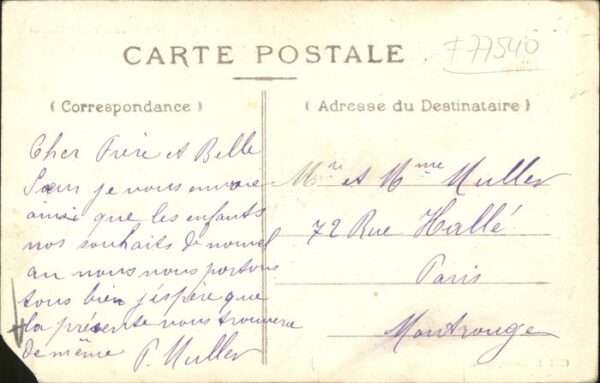 CARTE POSTALE
F 77540
( Correspondance )
( Adresse du Destinataire )
Cher Frère et Belle
Sœur je vous envoie
ainsi que les enfants
nos souhaits de nouvel
an nous nous portons
tous bien j'espère que
la présente vous trouvera
de même P. Muller
Mr et Mme Muller
72 Rue Hallé
Paris
Montrouge